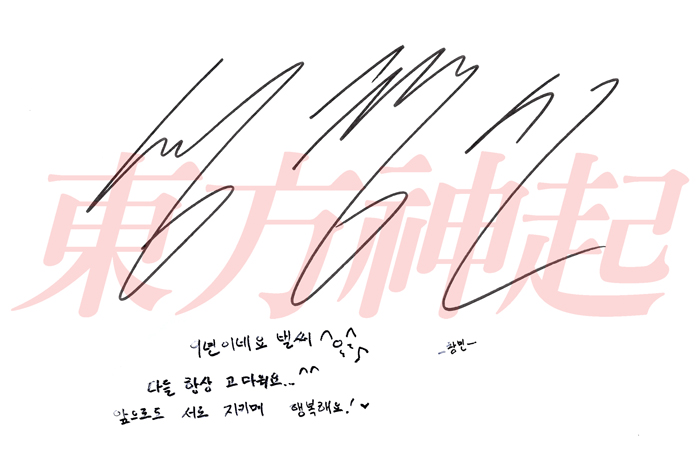 東方神起
9년이네요 벌써 ^^
다들 항상 고마워요...^^
앞으로도 서로 지키며 행복해요! ♥
-창민-